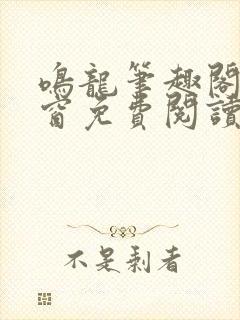 鳴龍筆趣閣
窗免費閱讀
不是剩者